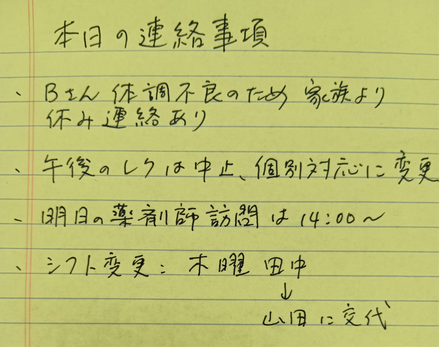 本日の連絡事項
、Bさん 体調不良のため 家族より
休み連絡あり
、午後のレクは中止、個別対応に変更
、明日の薬剤師訪問は14:00〜
、シフト変更: 木曜 田中
↓
山田に交代